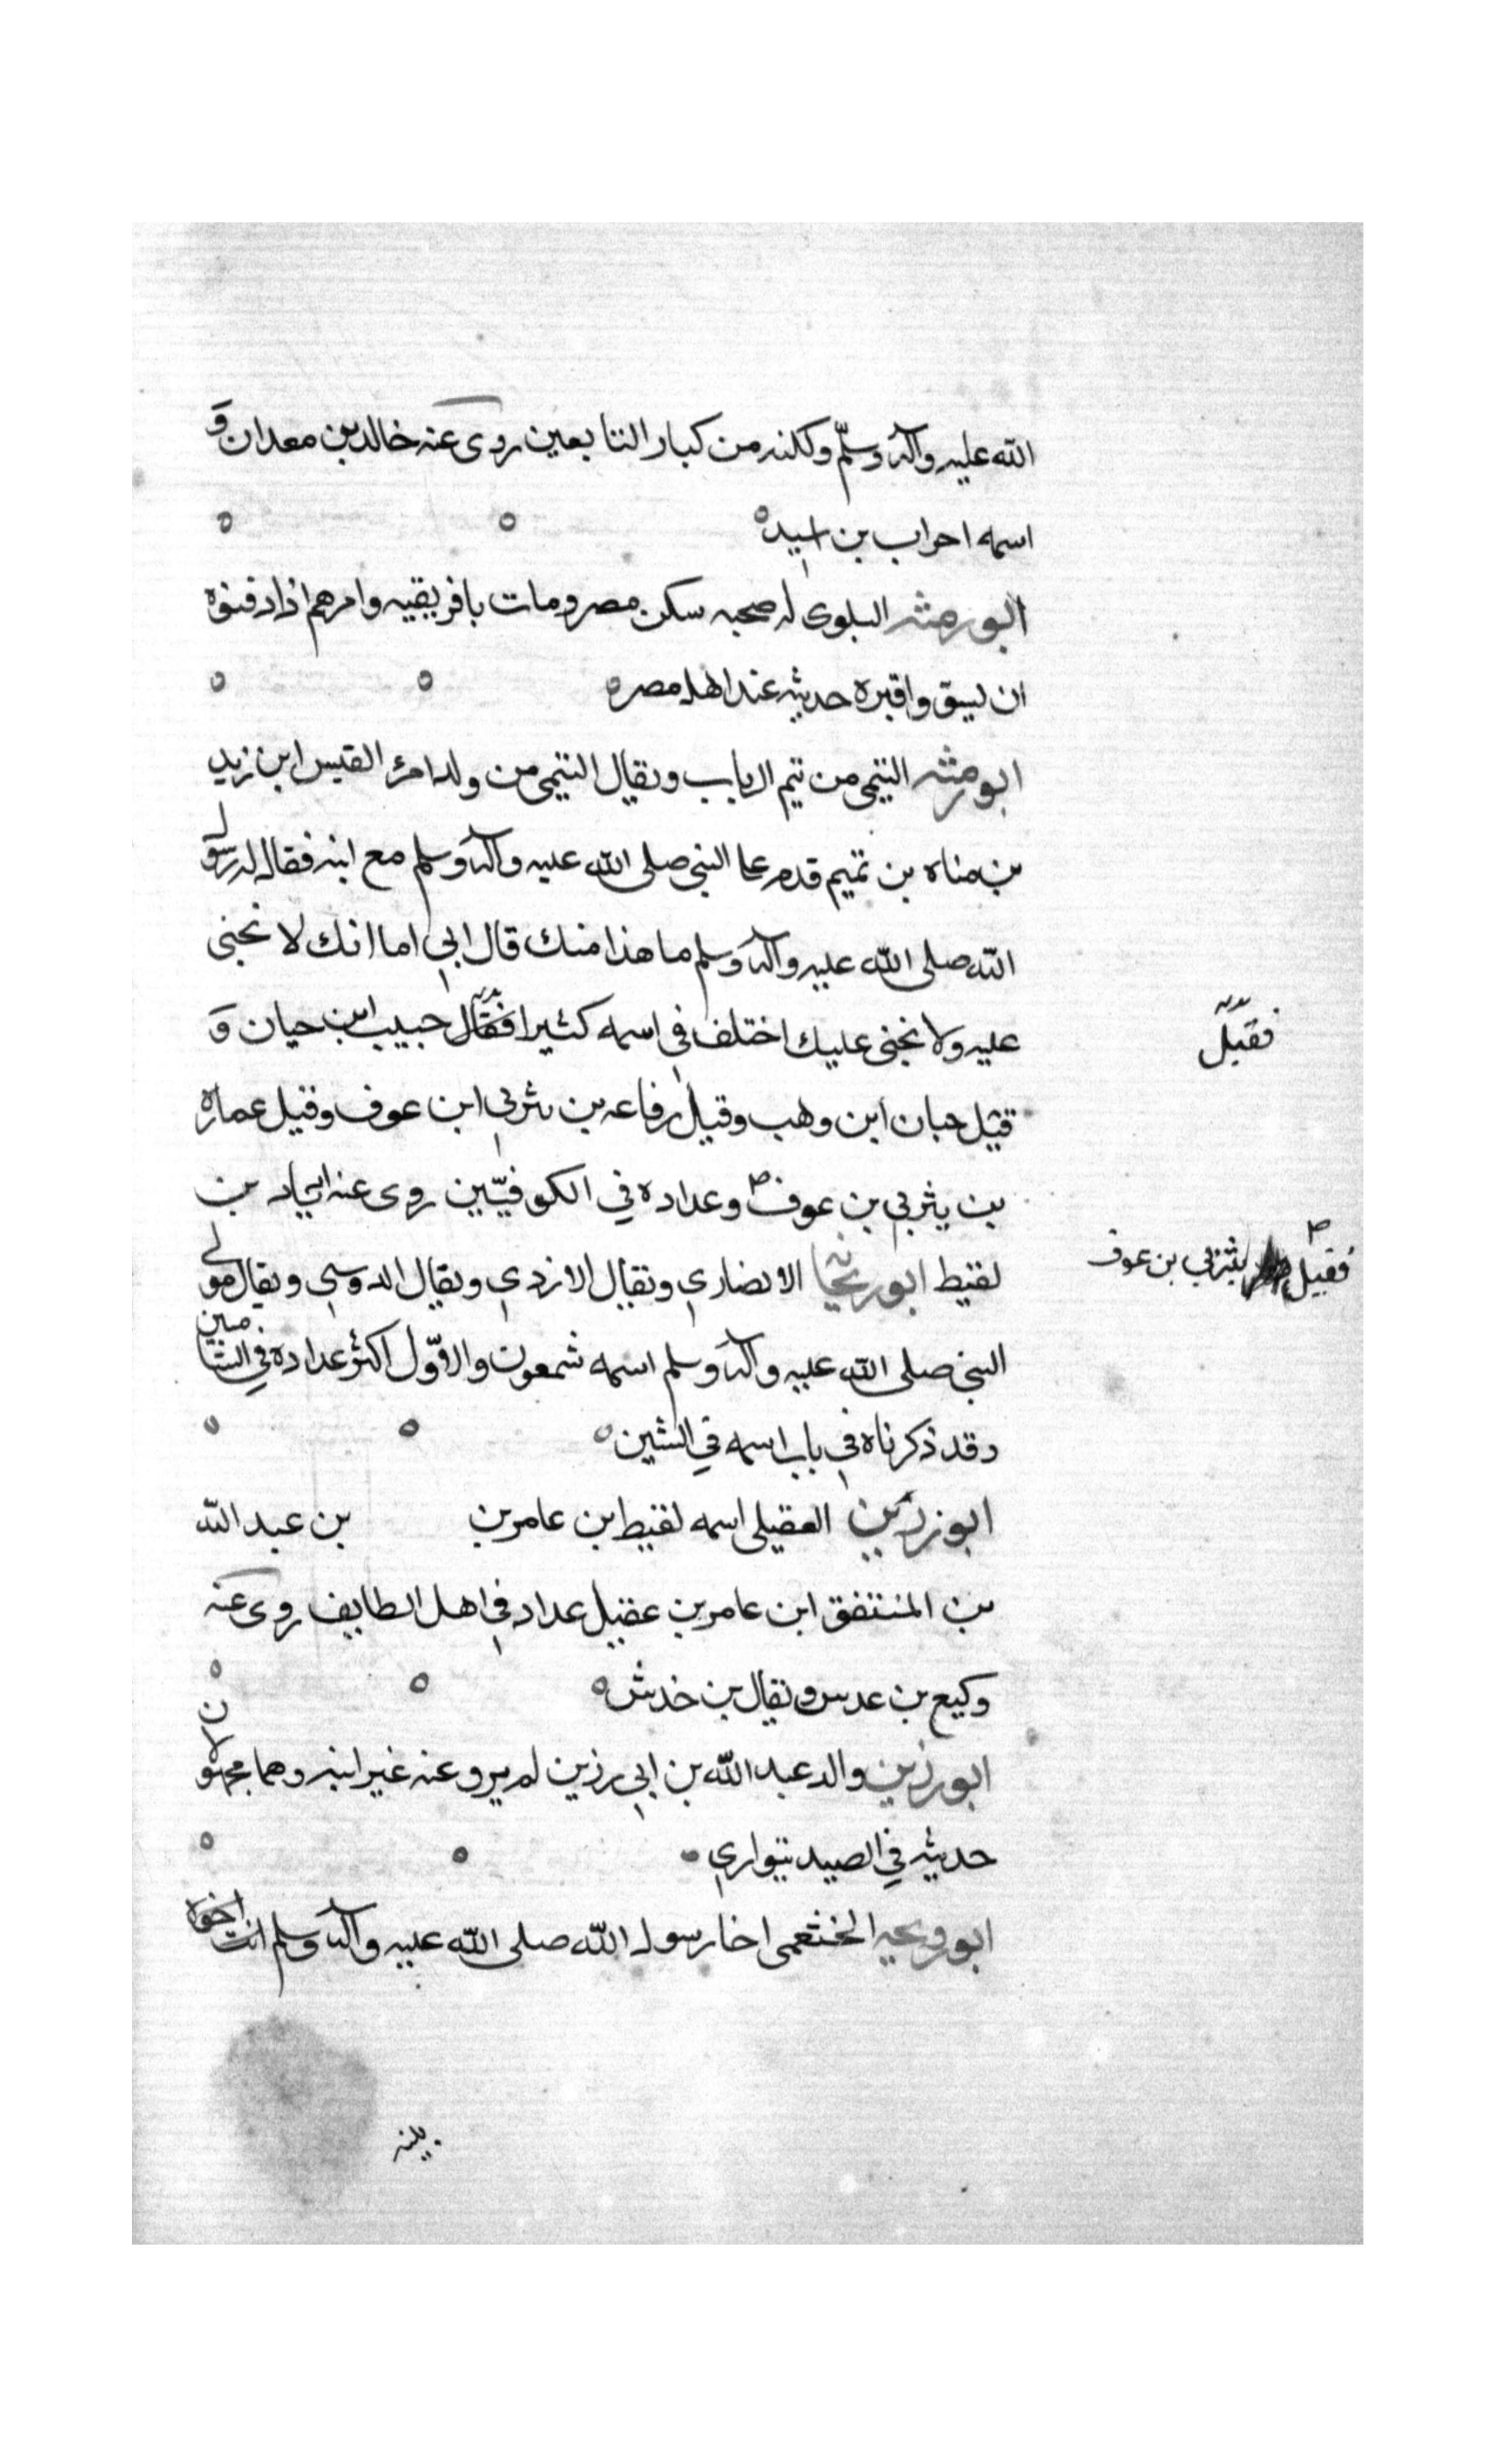 الله عليه وآله وسلّم ولكنه من كبار التابعين روى عنه خالد بن معدان وَ
اسمه احراب بن اسيد
ابو رمثه البلوى له صحبه سكن مصر ومات بافريقيه وامرهم اذا دفنوه
ان يسووا قبره حديثه عند اهل مصر
ابو رمثه التيمى من تيم الرباب ويقال التيمى من ولد امرء القيس ابن زيد
بن مناه بن تميم قدم على النبى صلى الله عليه وآله وسلم مع ابنه فقال له رسول
الله صلى الله عليه وآله وسلم ما هذا منك قال ابني اما انك لا تجنى
عليه ولا يجنى عليك اختلف في اسمه كثيرا فقال حبيب ابن حيان وَ
فقيل
قيل حبان ابن وهب وقيل رفاعه بن يثربي ابن عوف وقيل عماره
بن يثربي بن عوف وعداده في الكوفيّين روى عنه اياد بن
فقيل يثربي بن عوف
لقيط ابو ريحانه الانصاري ويقال الازدي ويقال الدوسي ويقال مولى
النبى صلى الله عليه وآله وسلم اسمه شمعون والاوّل اكثر عداده في الشاميين
وقد ذكرناه في باب اسمه في الشين
ابو رزين العقيلى اسمه لقيط ابن عامر بن بن عبد الله
بن المنتفق ابن عامر بن عقيل عداد في اهل الطايف روى عنه
وكيع بن عدس ويقال بن خدش
ابو رزين والد عبد الله بن ابي رزين لم يرو عنه غير ابنه وهما مجهولان
حديثه في الصيد يتواري
ابو رويحه الخثعمى اخا رسول الله صلى الله عليه وآله وسلم انت اخوه
بينه